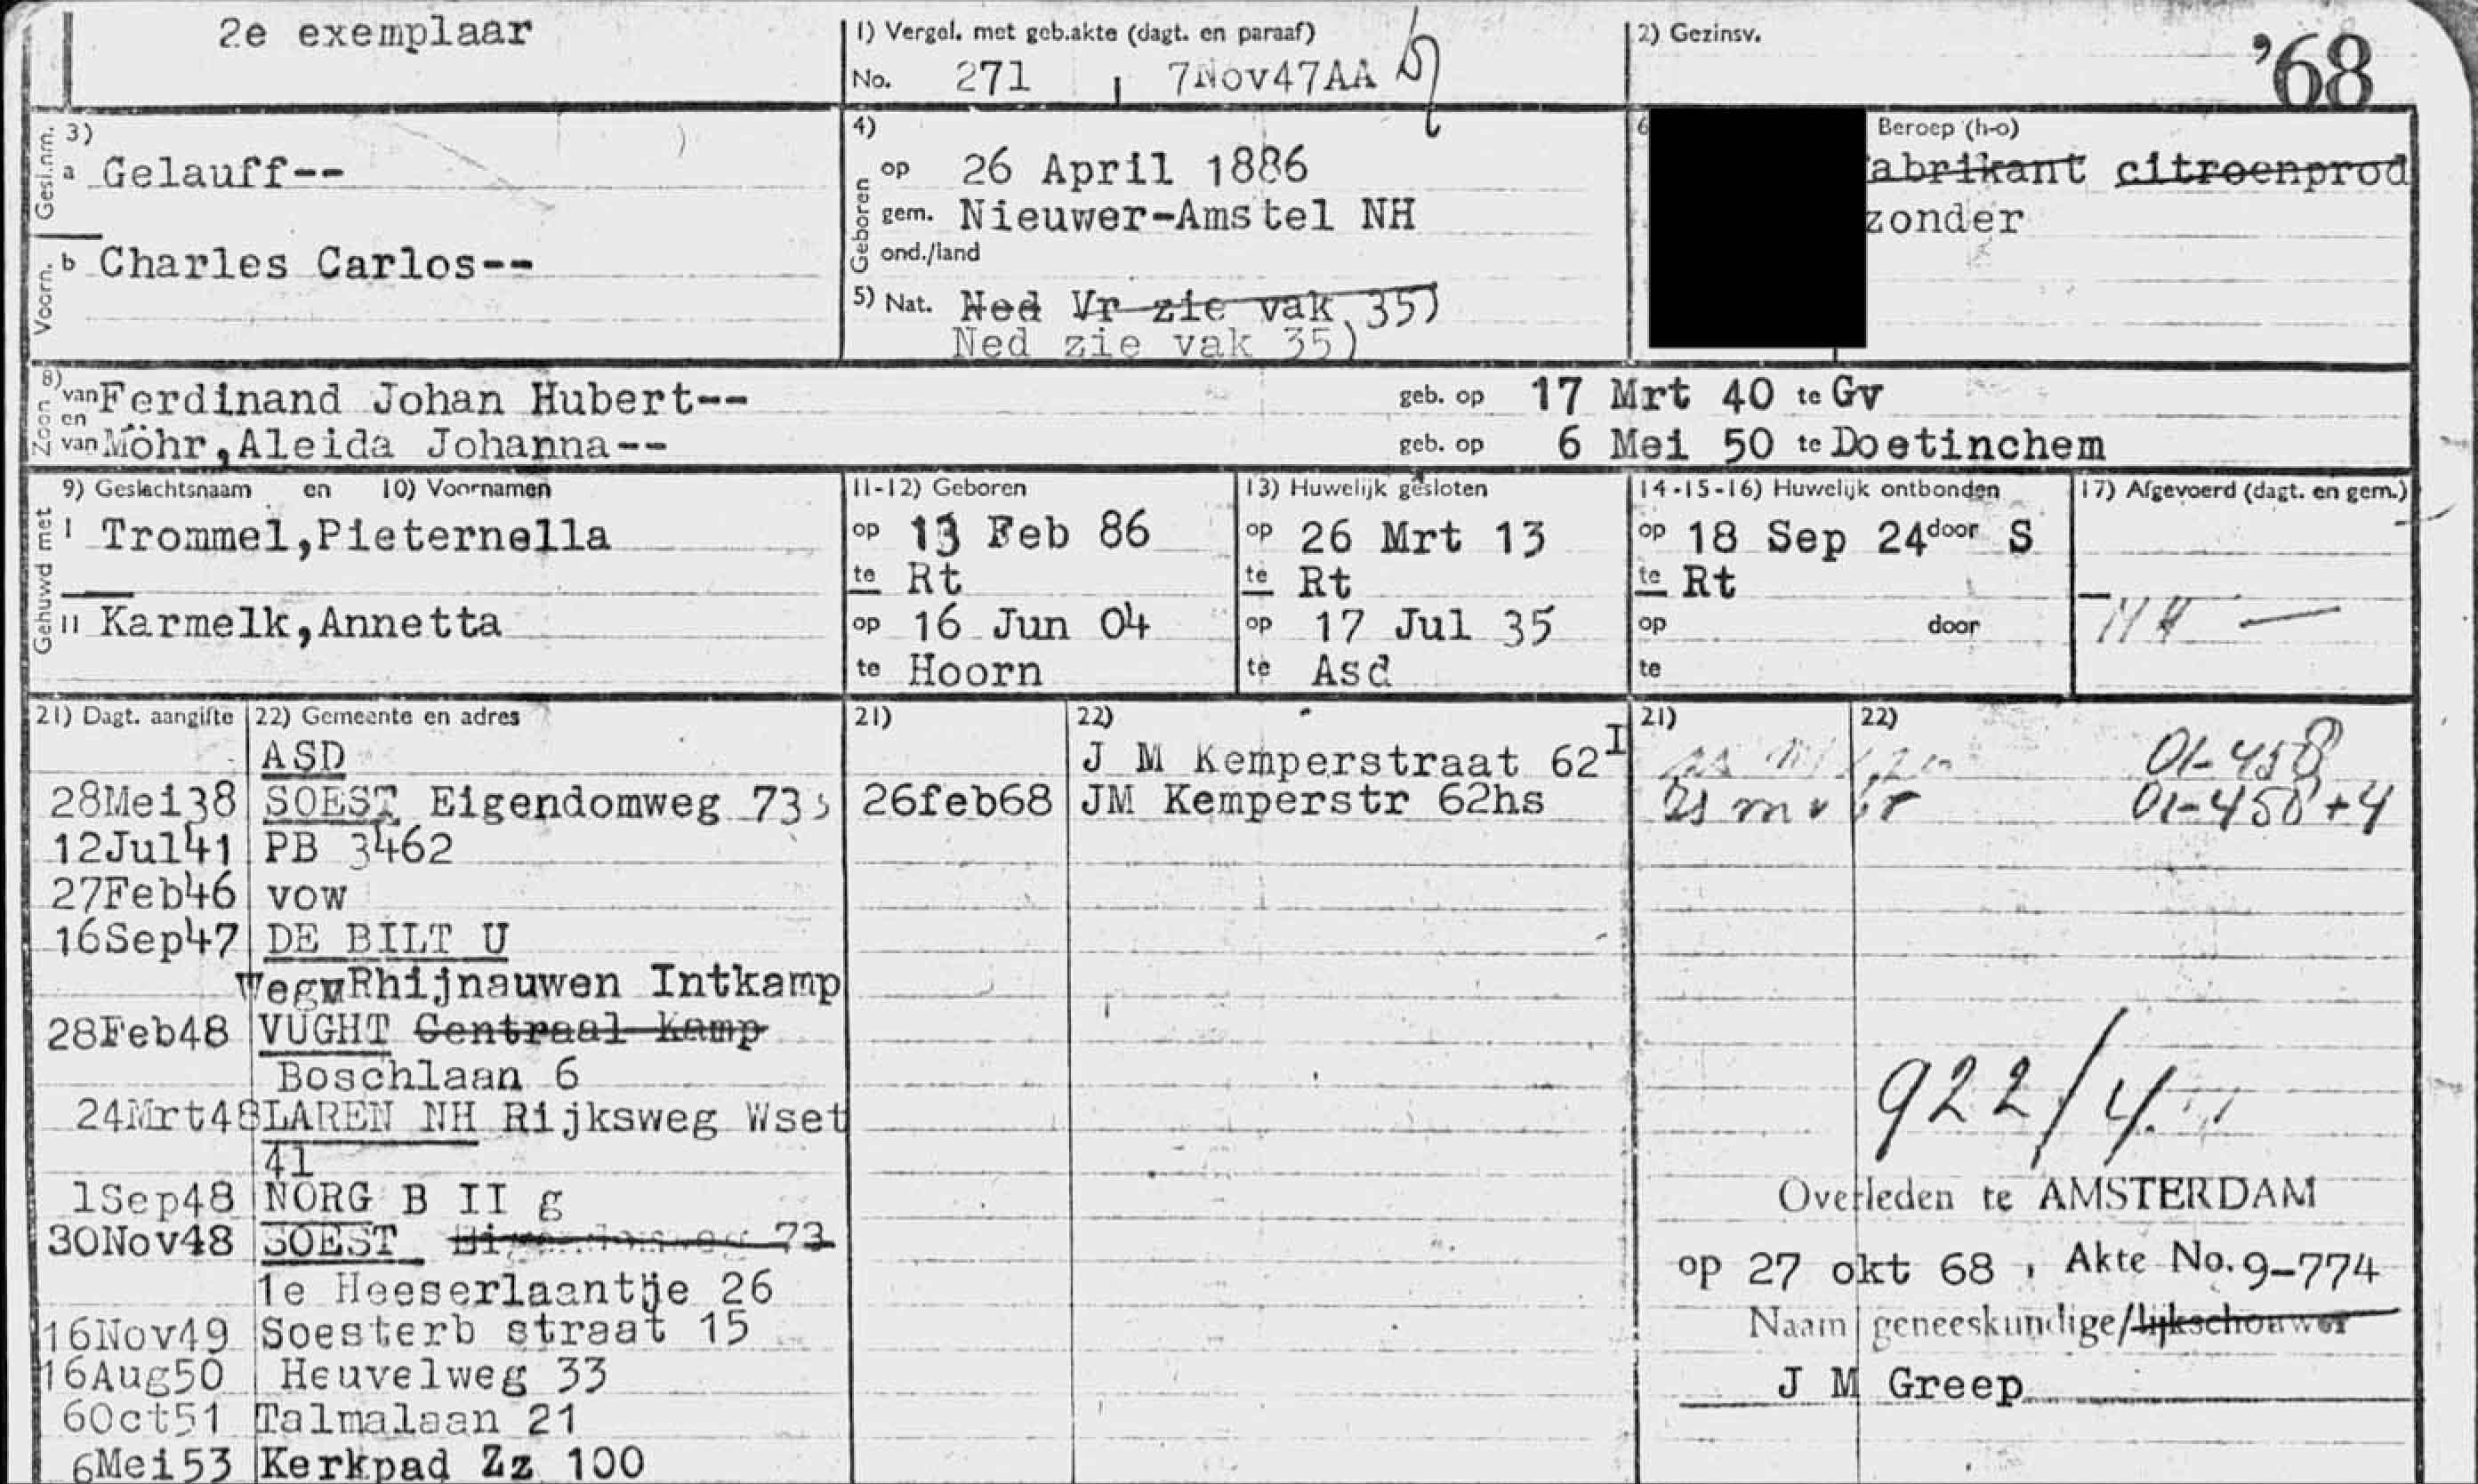 2e exemplaar
1) Vergel. met geb.akte (dagt. en paraaf)
No. 271 7Nov47AA
2) Gezinsv.
'68
Gesl.nm.
3)
a Gelauff--
Voorn.
b Charles Carlos--
4)
Geboren
op 26 April 1886
gem. Nieuwer-Amstel NH
ond./land
5) Nat. Ned Vr zie vak 35)
Ned zie vak 35)
6
Beroep (h-o)
abrikant citroenprod
zonder
8)
Zoon
van Ferdinand Johan Hubert-- geb. op 17 Mrt 40 te Gv
en
van Möhr,Aleida Johanna-- geb. op 6 Mei 50 te Doetinchem
Gehuwd met
9) Geslachtsnaam en 10) Voornamen
11-12) Geboren
13) Huwelijk gesloten
14-15-16) Huwelijk ontbonden
17) Afgevoerd (dagt. en gem.)
I Trommel,Pieternella op 13 Feb 86 op 26 Mrt 13 op 18 Sep 24 door S
te Rt te Rt te Rt
II Karmelk,Annetta op 16 Jun 04 op 17 Jul 35 op door
te Hoorn te Asd te
21) Dagt. aangifte 22) Gemeente en adres
21) 22)
21) 22)
ASD
28Mei38 SOEST Eigendomweg 73
12Jul41 PB 3462
27Feb46 vow
16Sep47 DE BILT U
WegvRhijnauwen Intkamp
28Feb48 VUGHT Centraal Kamp
Boschlaan 6
24Mrt48 LAREN NH Rijksweg Wset
41
1Sep48 NORG B II g
30Nov48 SOEST Eigendomweg 73
1e Heeserlaantje 26
16Nov49 Soesterb straat 15
16Aug50 Heuvelweg 33
6Oct51 Talmalaan 21
6Mei53 Kerkpad Zz 100
J M Kemperstraat 62I
26feb68 JM Kemperstr 62hs
01-458
01-458+4
922/4
Overleden te AMSTERDAM
op 27 okt 68 , Akte No. 9-774
Naam geneeskundige/lijkschouwer
J M Greep